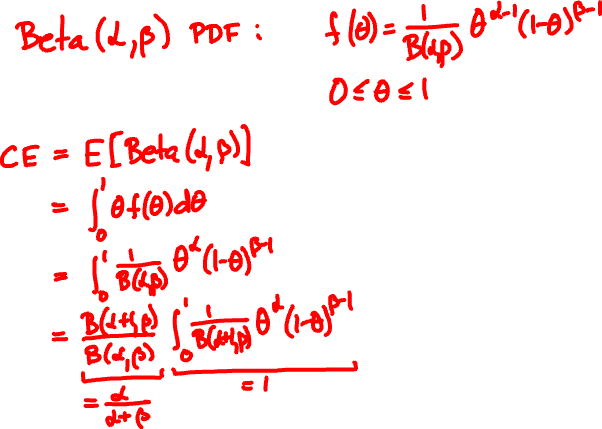 Beta(α,β) PDF: f(θ) = 1/B(α,β) θ^(α-1) (1-θ)^(β-1)
0 ≤ θ ≤ 1
CE = E[Beta(α,β)]
= ∫₀¹ θ f(θ) dθ
= ∫₀¹ 1/B(α,β) θ^α (1-θ)^(β-1)
= B(α+1,β)/B(α,β) ∫₀¹ 1/B(α+1,β) θ^α (1-θ)^(β-1)
= α/(α+β) = 1